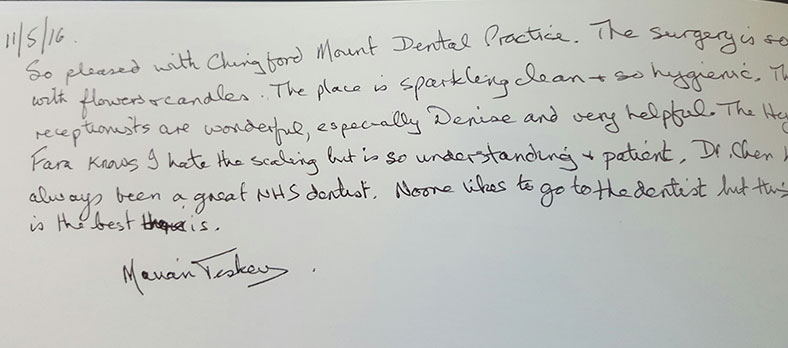 11/5/16.
So pleased with Chingford Mount Dental Practice. The surgery is so
with flowers & candles. The place is sparkling clean + so hygienic. Th
receptionists are wonderful, especially Denise and very helpful. The Hy
Fara knows I hate the scaling but is so understanding + patient. Dr. Chen h
always been a great NHS dentist. Noone likes to go to the dentist but this
is the best is.